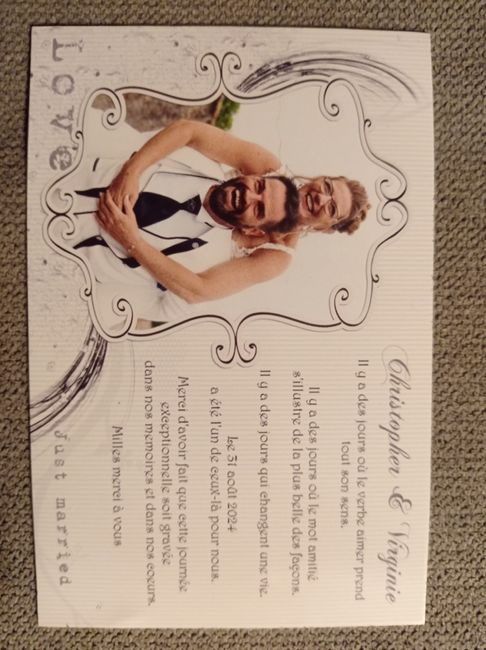 Christopher & Virginie
Il y a des jours où le verbe aimer prend
tout son sens.
Il y a des jours où le mot amitié
s'illustre de la plus belle des façons.
Il y a des jours qui changent une vie.
Le 31 août 2024
a été l'un de ceux-là pour nous.
Merci d'avoir fait que cette journée
exceptionnelle soit gravée
dans nos memoires et dans nos coeurs.
Milles merci à vous
Love
just married